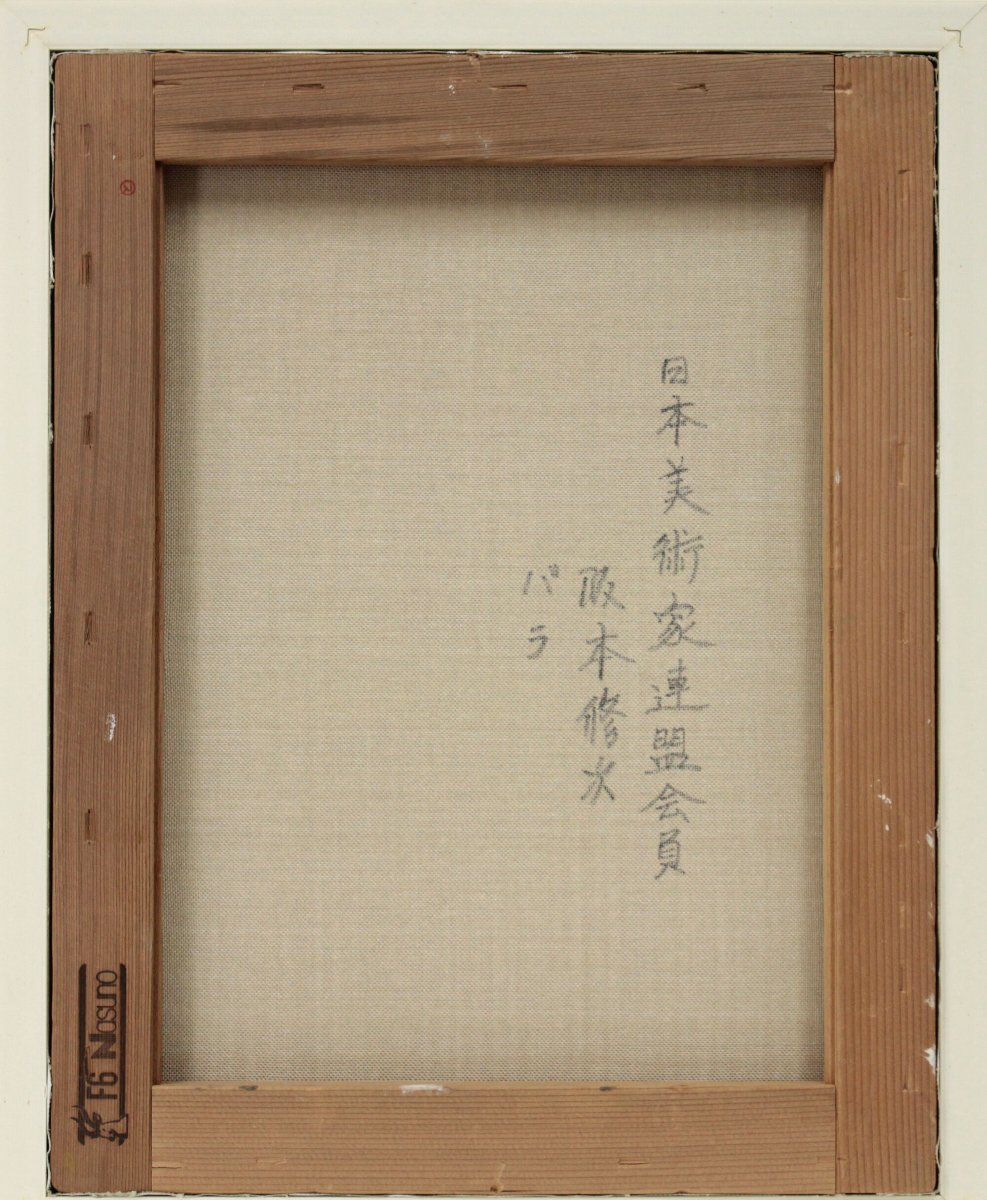 日本美術家連盟会員
阪本修水
バラ
F6 Nasuno